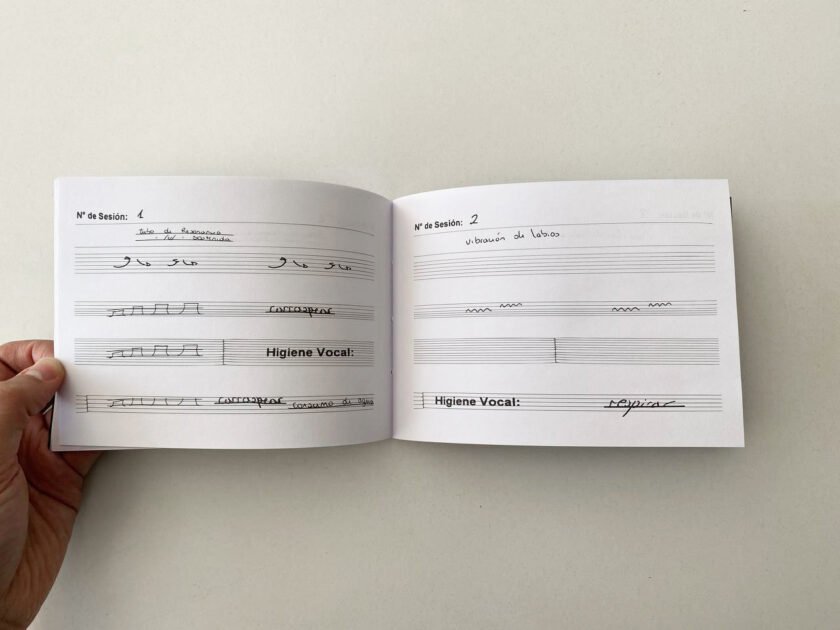 Nº de Sesión: 1
Tubo de Resonancia
/u/ sostenida
carraspear
Higiene Vocal:
carraspear consumo de
Nº de Sesión: 2
vibración de labios
Higiene Vocal:
respirar